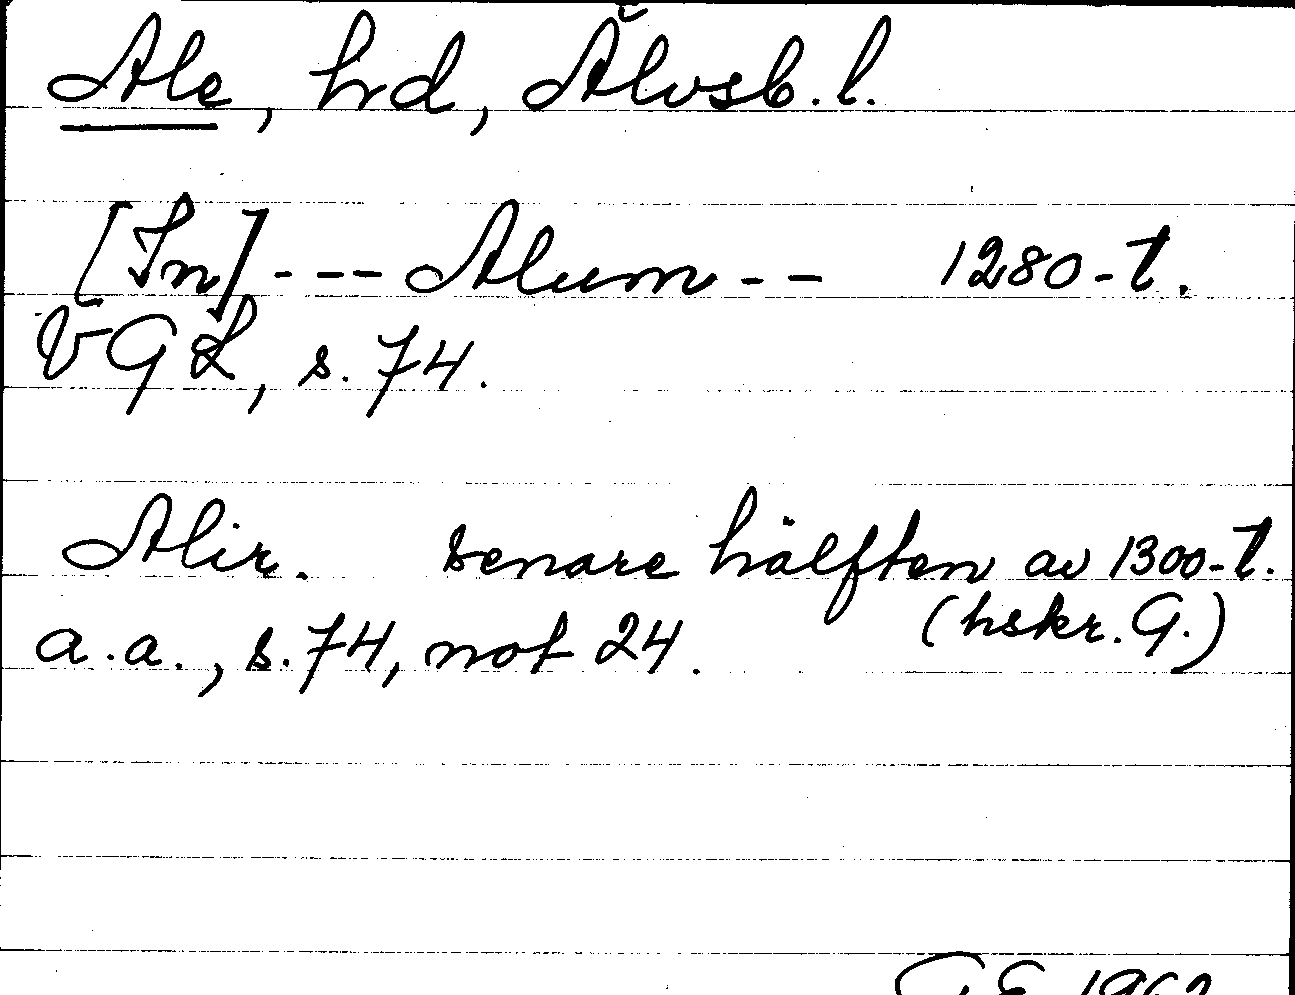 Ale, hd, Älvsb. l.
[In] --- Alum -- 1280-t.
VGL, s. 74.
Alir. senare hälften av 1300-t.
(hskr. G.)
a.a., s. 74, not 24.